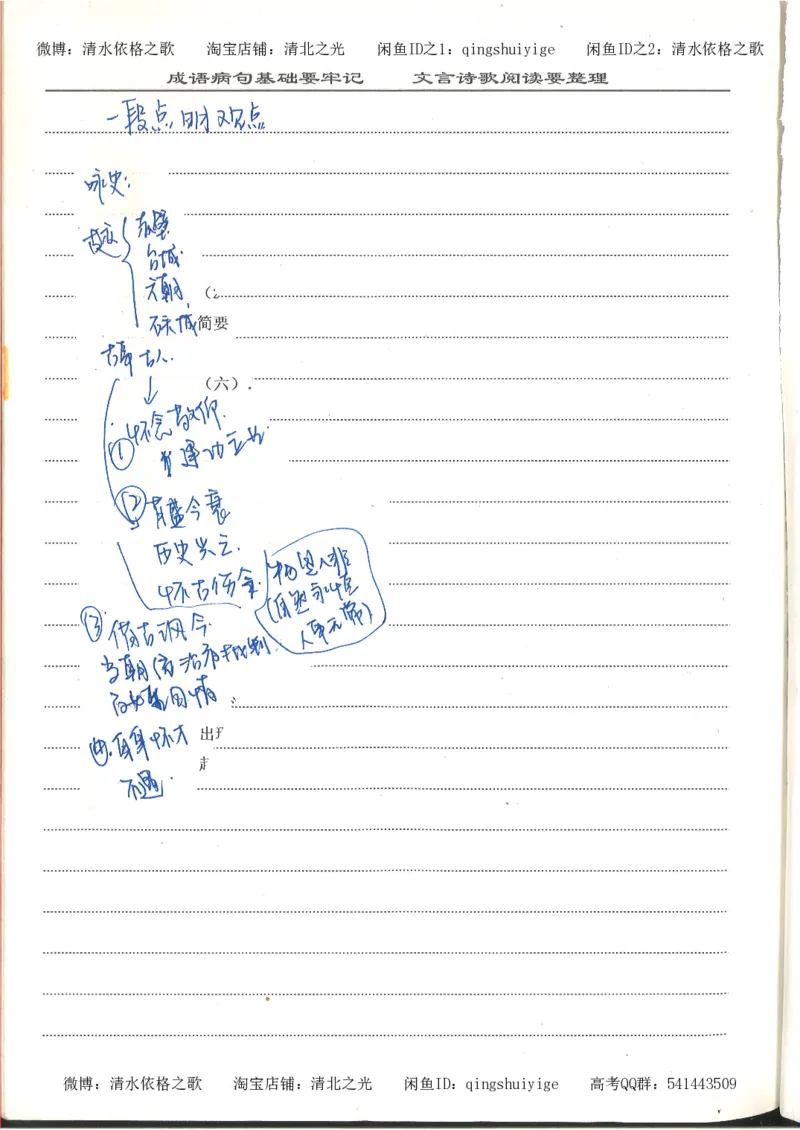 微博：清水依格之歌 淘宝店铺：清北之光 闲鱼ID之1：qingshuiyige 闲鱼ID之2：清水依格之歌
成语病句基础要牢记 文言诗歌阅读要整理
一段点明观点
咏史：
赤壁
台城
六朝
石头城 简要
古事 古人.
（六）.
① 怀念敬仰.
建功立业
② 昔盛今衰
历史兴亡.
怀古伤今.
物是人非
(自然永恒
人事无常)
③ 借古讽今
当朝(统治者)
家国情
④.自身怀才
不遇.
出现
微博：清水依格之歌 淘宝店铺：清北之光 闲鱼ID：qingshuiyige 高考QQ群：541443509